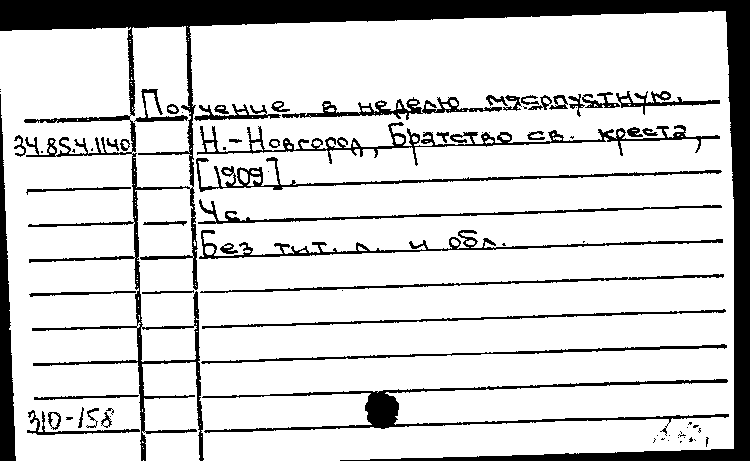 Поучение в неделю мясопустную.
34.85.4.1140 Н.-Новгород, Братство св. креста,
[1909].
4 с.
Без тит. л. и обл.
310-158